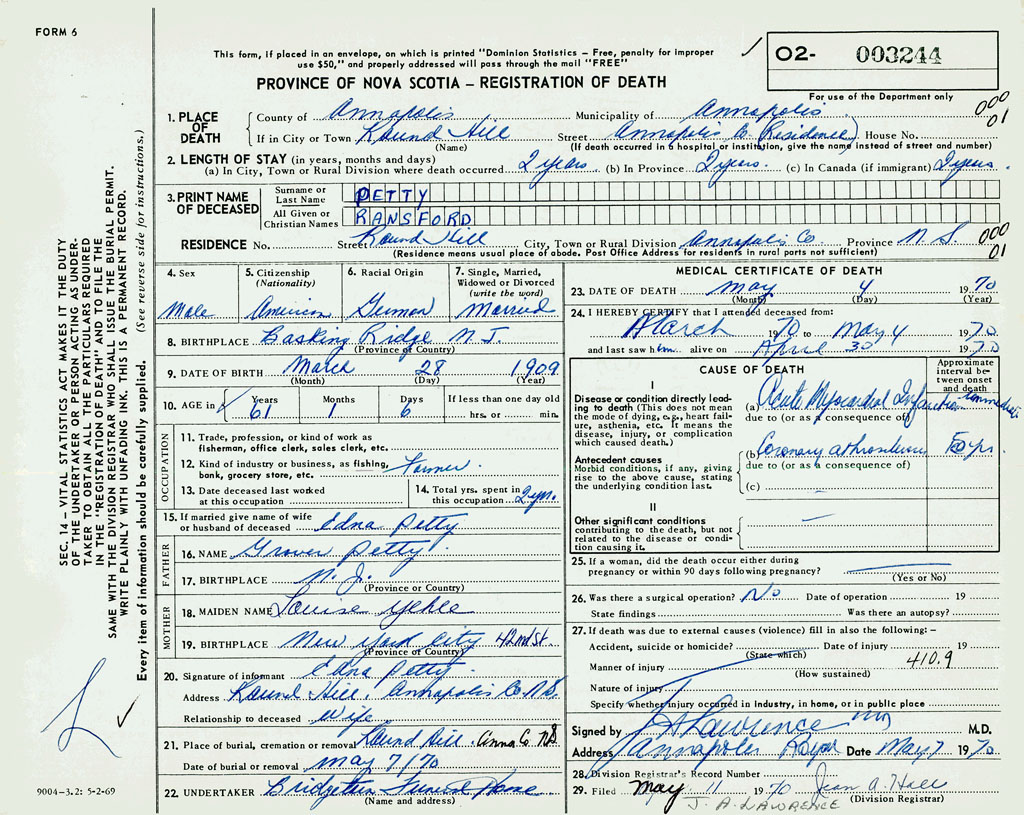 FORM 6
This form, if placed in an envelope, on which is printed "Dominion Statistics – Free, penalty for improper
use $50," and properly addressed will pass through the mail "FREE"
02- 003244
PROVINCE OF NOVA SCOTIA – REGISTRATION OF DEATH
For use of the Department only
000
01
1. PLACE OF DEATH
County of Annapolis Municipality of Annapolis
If in City or Town Round Hill Street Annapolis Co (Residence) House No.
(Name) (If death occurred in a hospital or institution, give the name instead of street and number)
2. LENGTH OF STAY (in years, months and days)
(a) In City, Town or Rural Division where death occurred 2 years (b) In Province 2 years. (c) In Canada (if immigrant) 2 years
3. PRINT NAME OF DECEASED
Surname or Last Name PETTY
All Given or Christian Names RANSFORD
RESIDENCE No. Street Round Hill City, Town or Rural Division Annapolis Co Province N.S. 000
01
(Residence means usual place of abode. Post Office Address for residents in rural parts not sufficient)
4. Sex Male
5. Citizenship (Nationality) American
6. Racial Origin German
7. Single, Married, Widowed or Divorced (write the word) Married
8. BIRTHPLACE Basking Ridge N.J.
(Province or Country)
9. DATE OF BIRTH March 28 1909
(Month) (Day) (Year)
10. AGE in Years 61 Months 1 Days 6 If less than one day old hrs. or min.
OCCUPATION
11. Trade, profession, or kind of work as fisherman, office clerk, sales clerk, etc.
12. Kind of industry or business, as fishing, bank, grocery store, etc. Farmer.
13. Date deceased last worked at this occupation
14. Total yrs. spent in this occupation 2 yrs.
15. If married give name of wife or husband of deceased Edna Petty
FATHER
16. NAME Grover Petty
17. BIRTHPLACE N.J.
(Province or Country)
MOTHER
18. MAIDEN NAME Louise Yehle
19. BIRTHPLACE New York City 42nd St.
(Province or Country)
20. Signature of informant Edna Petty.
Address Round Hill, Annapolis Co. N.S.
Relationship to deceased Wife
21. Place of burial, cremation or removal Round Hill. Anna Co. N.S.
Date of burial or removal May 7/70
22. UNDERTAKER Bridgetown Funeral Home
(Name and address)
MEDICAL CERTIFICATE OF DEATH
23. DATE OF DEATH May 4 1970
(Month) (Day) (Year)
24. I HEREBY CERTIFY that I attended deceased from:
March 1970 to May 4 1970
and last saw him alive on April 30 1970
CAUSE OF DEATH
Approximate interval between onset and death
I
Disease or condition directly leading to death (This does not mean the mode of dying, e.g., heart failure, asthenia, etc. It means the disease, injury, or complication which caused death.)
(a) Acute Myocardial Infarction immediate
due to (or as a consequence of)
Antecedent causes
Morbid conditions, if any, giving rise to the above cause, stating the underlying condition last.
(b) Coronary yrs.
due to (or as a consequence of)
(c)
II
Other significant conditions contributing to the death, but not related to the disease or condition causing it.
25. If a woman, did the death occur either during pregnancy or within 90 days following pregnancy?
(Yes or No)
26. Was there a surgical operation? No Date of operation 19
State findings Was there an autopsy?
27. If death was due to external causes (violence) fill in also the following: –
Accident, suicide or homicide? Date of injury 19
(State which)
Manner of injury 410.9
(How sustained)
Nature of injury
Specify whether injury occurred in industry, in home, or in public place
Signed by J A Lawrence MD M.D.
Address Annapolis Royal Date May 7 1970
28. Division Registrar's Record Number
29. Filed May 11 1970 Jean A. Hall
(Division Registrar)
J. A. LAWRENCE
SEC. 14 – VITAL STATISTICS ACT MAKES IT THE DUTY
OF THE UNDERTAKER OR PERSON ACTING AS UNDER-
TAKER TO OBTAIN ALL THE PARTICULARS REQUIRED
IN THE "REGISTRATION OF DEATH" AND TO FILE THE
SAME WITH THE DIVISION REGISTRAR WHO SHALL ISSUE THE BURIAL PERMIT.
WRITE PLAINLY WITH UNFADING INK. THIS IS A PERMANENT RECORD.
Every item of information should be carefully supplied. (See reverse side for instructions.)
9004-3.2: 5-2-69